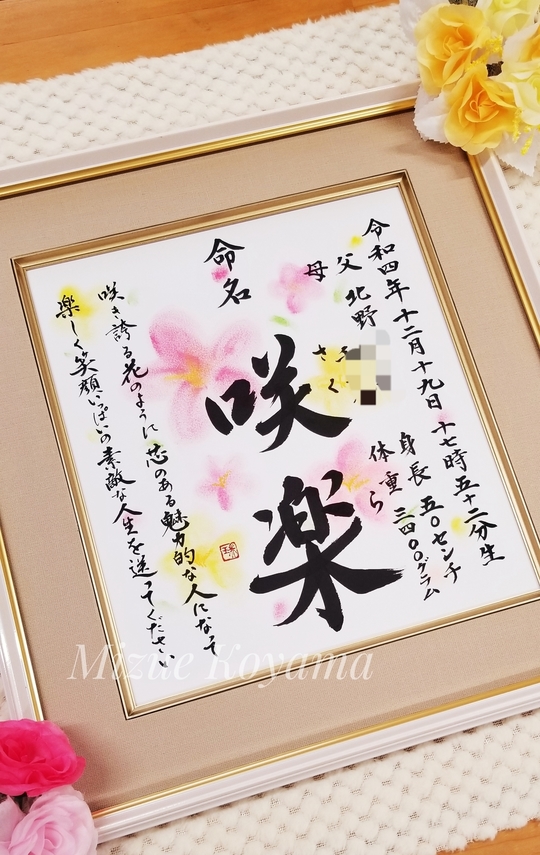 令和四年十二月十九日 十七時五十二分生
父 北野
母
身長 五〇センチ
体重 三四〇〇グラム
さくら
命名
咲楽
咲き誇る花のように 芯のある魅力的な人になって
楽しく笑顔いっぱいの素敵な人生を送ってください
Mizue Koyama